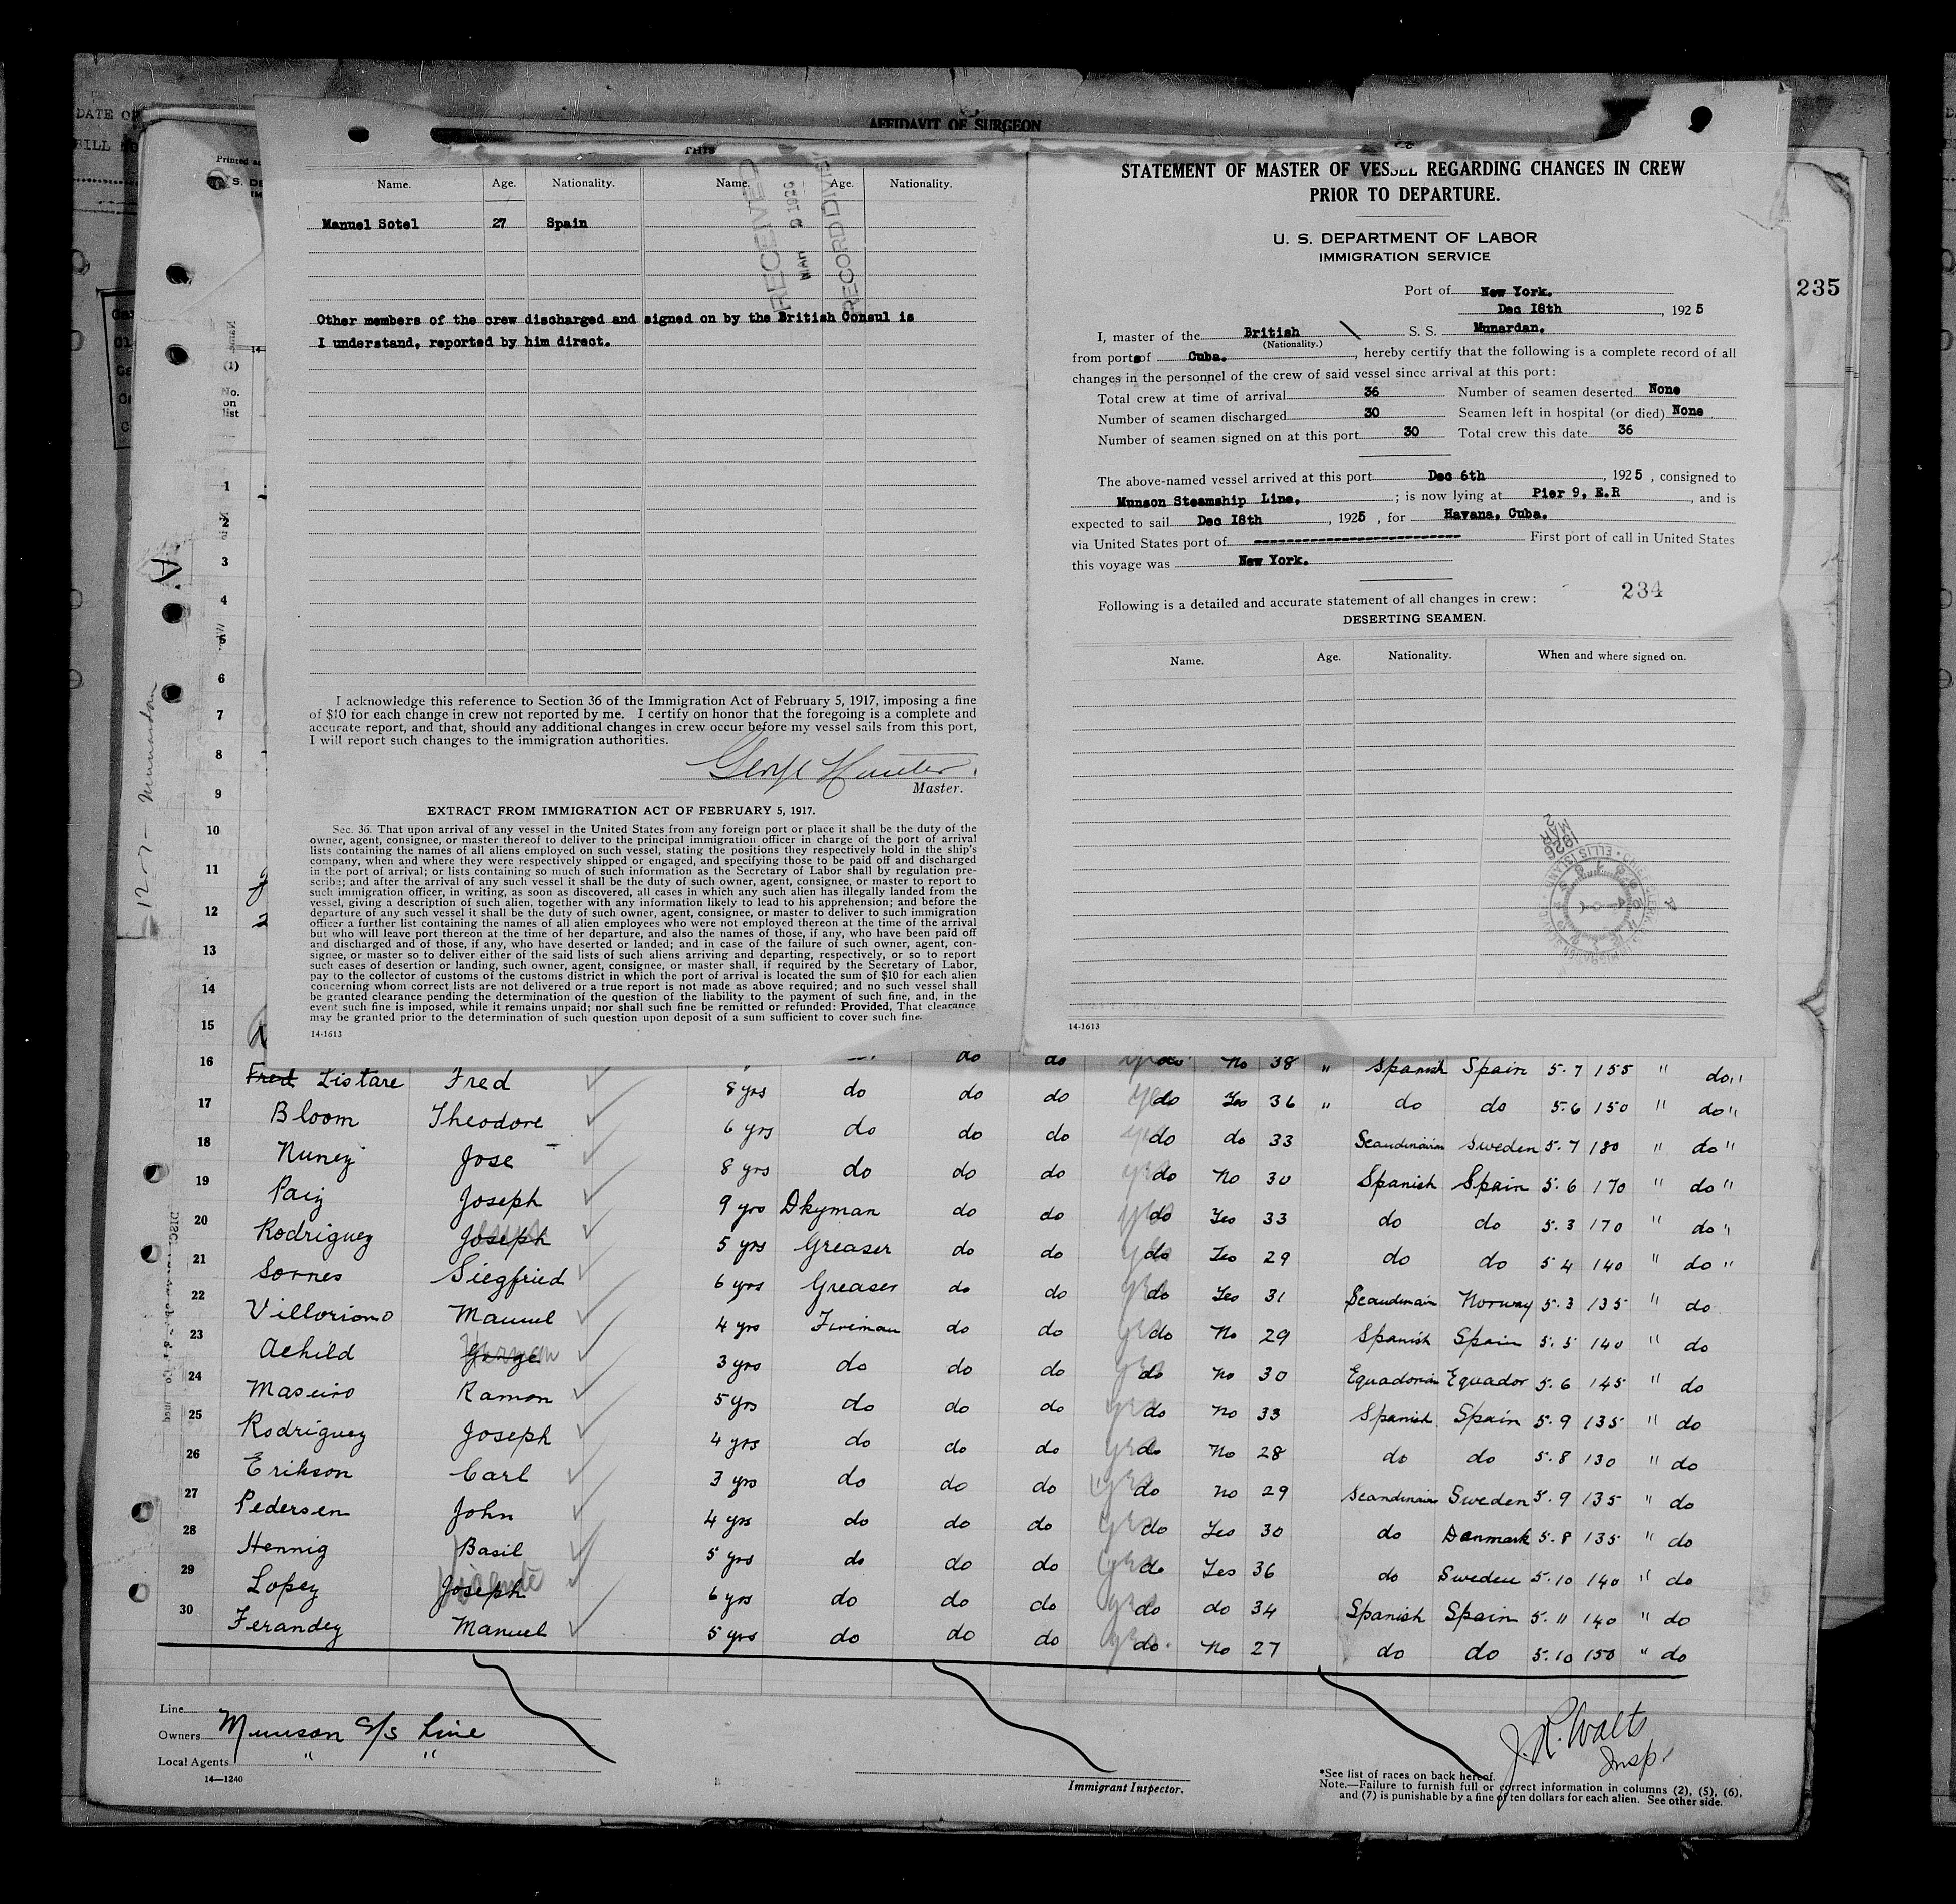 AFFIDAVIT OF SURGEON
DATE OF
BILL NO
Printed as
THIS
Name. Age. Nationality. Name. Age. Nationality.
Manuel Sotel 27 Spain
RECEIVED
RECORD DIVIS
Other members of the crew discharged and signed on by the British Consul is
I understand, reported by him direct.
I acknowledge this reference to Section 36 of the Immigration Act of February 5, 1917, imposing a fine
of $10 for each change in crew not reported by me. I certify on honor that the foregoing is a complete and
accurate report, and that, should any additional changes in crew occur before my vessel sails from this port,
I will report such changes to the immigration authorities.
George Hunter.
Master.
EXTRACT FROM IMMIGRATION ACT OF FEBRUARY 5, 1917.
Sec. 36. That upon arrival of any vessel in the United States from any foreign port or place it shall be the duty of the
owner, agent, consignee, or master thereof to deliver to the principal immigration officer in charge of the port of arrival
lists containing the names of all aliens employed on such vessel, stating the positions they respectively hold in the ship's
company, when and where they were respectively shipped or engaged, and specifying those to be paid off and discharged
in the port of arrival; or lists containing so much of such information as the Secretary of Labor shall by regulation pre-
scribe; and after the arrival of any such vessel it shall be the duty of such owner, agent, consignee, or master to report to
such immigration officer, in writing, as soon as discovered, all cases in which any such alien has illegally landed from the
vessel, giving a description of such alien, together with any information likely to lead to his apprehension; and before the
departure of any such vessel it shall be the duty of such owner, agent, consignee, or master to deliver to such immigration
officer a further list containing the names of all alien employees who were not employed thereon at the time of the arrival
but who will leave port thereon at the time of her departure, and also the names of those, if any, who have been paid off
and discharged and of those, if any, who have deserted or landed; and in case of the failure of such owner, agent, con-
signee, or master so to deliver either of the said lists of such aliens arriving and departing, respectively, or so to report
such cases of desertion or landing, such owner, agent, consignee, or master shall, if required by the Secretary of Labor,
pay to the collector of customs of the customs district in which the port of arrival is located the sum of $10 for each alien
concerning whom correct lists are not delivered or a true report is not made as above required; and no such vessel shall
be granted clearance pending the determination of the question of the liability to the payment of such fine, and, in the
event such fine is imposed, while it remains unpaid; nor shall such fine be remitted or refunded: Provided, That clearance
may be granted prior to the determination of such question upon deposit of a sum sufficient to cover such fine.
14-1613
STATEMENT OF MASTER OF VESSEL REGARDING CHANGES IN CREW
PRIOR TO DEPARTURE.
U. S. DEPARTMENT OF LABOR
IMMIGRATION SERVICE
235
Port of New York.
Dec 18th, 1925
I, master of the British S. S. Munardan.
(Nationality.)
from ports of Cuba., hereby certify that the following is a complete record of all
changes in the personnel of the crew of said vessel since arrival at this port:
Total crew at time of arrival 36 Number of seamen deserted None
Number of seamen discharged 30 Seamen left in hospital (or died) None
Number of seamen signed on at this port 30 Total crew this date 36
The above-named vessel arrived at this port Dec 6th, 1925, consigned to
Munson Steamship Line.; is now lying at Pier 9, E.R, and is
expected to sail Dec 18th, 1925, for Havana, Cuba.
via United States port of ---------------------------- First port of call in United States
this voyage was New York.
234
Following is a detailed and accurate statement of all changes in crew:
DESERTING SEAMEN.
Name. Age. Nationality. When and where signed on.
14-1613
(1)
No.
on
list
1
2
3
4
5
6
7
8
9
10
11
12
13
14
15
12-7- Munardan
16 do do do No 38 " Spanish Spain 5.7 155 " do "
17 Fred Listare Fred 8 yrs do do do do Yes 36 " do do 5.6 150 " do "
18 Bloom Theodore 6 yrs do do do do do 33 Scandinavian Sweden 5.7 180 " do "
19 Nunez Jose 8 yrs do do do do No 30 Spanish Spain 5.6 170 " do "
20 Paiz Joseph 9 yrs Dkyman do do do Yes 33 do do 5.3 170 " do "
21 Rodriguez Joseph 5 yrs Greaser do do do Yes 29 do do 5 4 140 " do "
22 Sornes Siegfried 6 yrs Greaser do do do Yes 31 Scandinavian Norway 5.3 135 " do
23 Villoriono Manuel 4 yrs Fireman do do do No 29 Spanish Spain 5.5 140 " do
24 Achild George 3 yrs do do do do No 30 Equadorian Equador 5.6 145 " do
25 Maseiro Ramon 5 yrs do do do do No 33 Spanish Spain 5.9 135 " do
26 Rodriguez Joseph 4 yrs do do do do No 28 do do 5.8 130 " do
27 Erikson Carl 3 yrs do do do do No 29 Scandinavian Sweden 5.9 135 " do
28 Pedersen John 4 yrs do do do do Yes 30 do Denmark 5.8 135 " do
29 Hennig Basil 5 yrs do do do do Yes 36 do Sweden 5.10 140 " do
30 Lopez Joseph 6 yrs do do do do do 34 Spanish Spain 5.11 140 " do
Ferandez Manuel 5 yrs do do do do No 27 do do 5.10 150 " do
Line
Owners Munson S/S Line
Local Agents " "
14—1240
Immigrant Inspector.
J. R. Walts
Insp.
*See list of races on back hereof.
Note.—Failure to furnish full or correct information in columns (2), (5), (6),
and (7) is punishable by a fine of ten dollars for each alien. See other side.